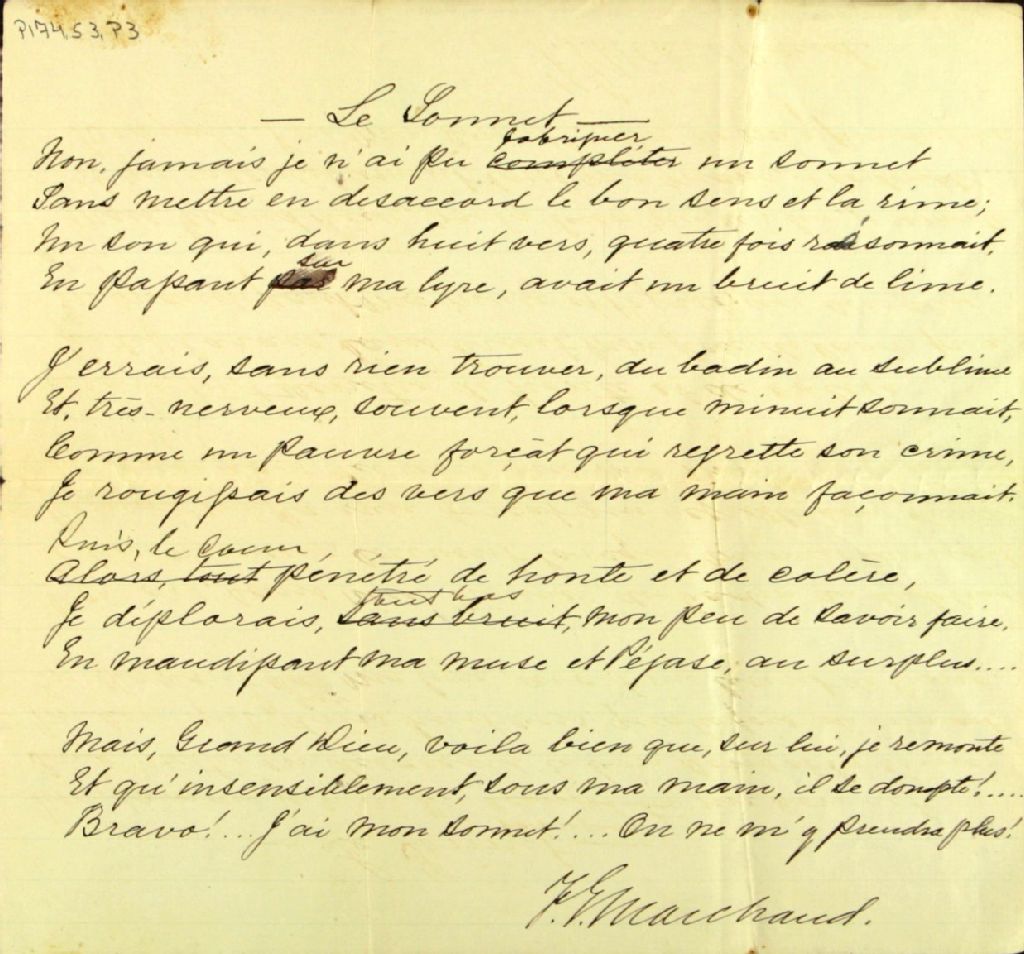 P174,S3,P3
— Le Sonnet —
fabriquer
Non, jamais je n'ai pu compléter un sonnet
Sans mettre en desaccord le bon sens et la rime;
Un son qui, dans huit vers, quatre fois résonnait,
sur
En passant par ma lyre, avait un bruit de lime.
J'errais, sans rien trouver, du badin au sublime
Et, très-nerveux, souvent, lorsque minuit sonnait,
Comme un pauvre forçat qui regrette son crime,
Je rougissais des vers que ma main façonnait.
Puis, le coeur,
Alors, tout pénétré de honte et de colère,
tout bas
Je déplorais, sans bruit, mon peu de savoir faire,
En maudissant ma muse et Pégase, au surplus....
Mais, Grand Dieu, voila bien que, sur lui, je remonte
Et qu'insensiblement, sous ma main, il se dompte!....
Bravo!... J'ai mon sonnet!.... On ne m'y prendra plus!
F. G. Marchand.